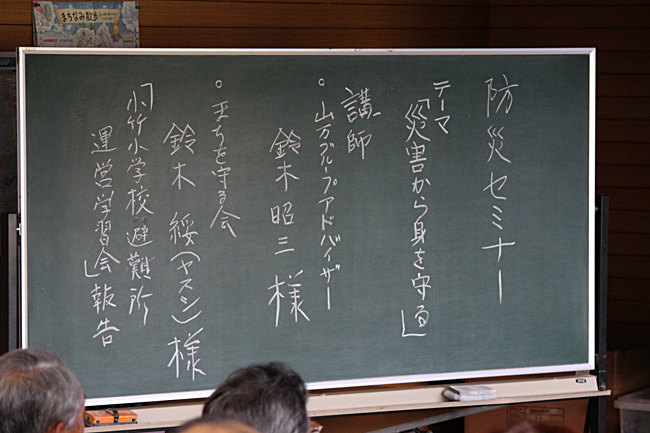 防災セミナー
テーマ
「災害から身を守る」
講師
・山万グループアドバイザー
鈴木昭三様
・まちを守る会
鈴木綏(ヤスシ)様
「小竹小学校避難所
運営学習会」報告
まちなみ散歩
MAP